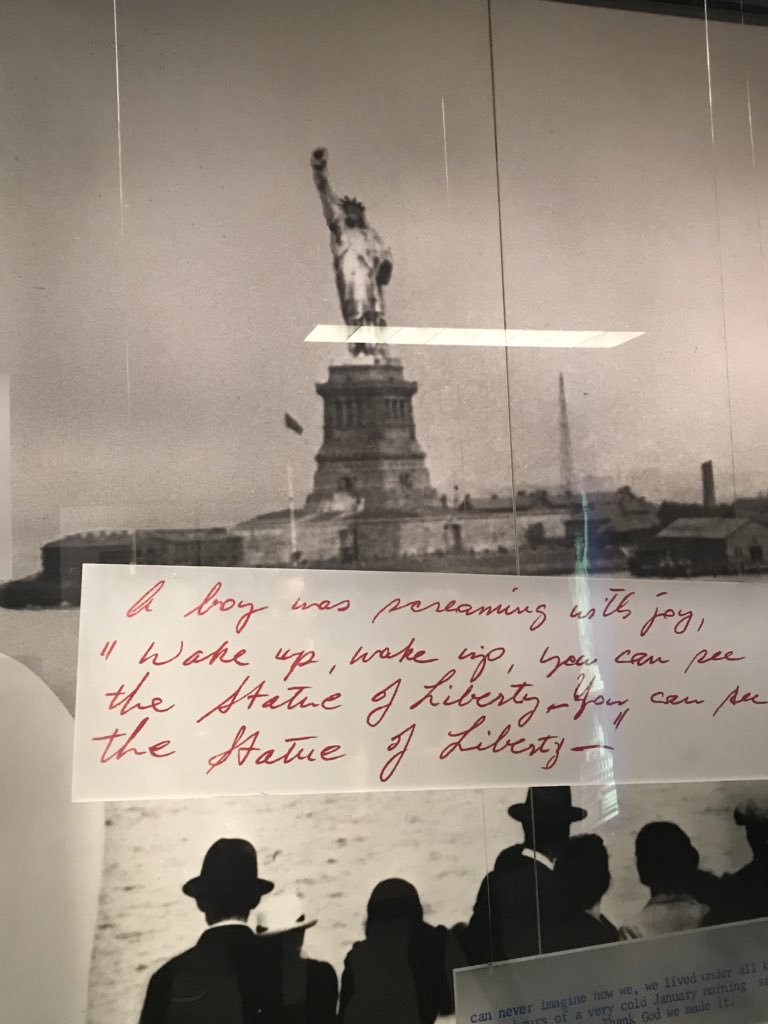 A boy was screaming with joy,
"Wake up, wake up, you can see
the Statue of Liberty - You can see
the Statue of Liberty -"
can never imagine how we, we lived under all
hours of a very cold January morning
Thank God we made it.